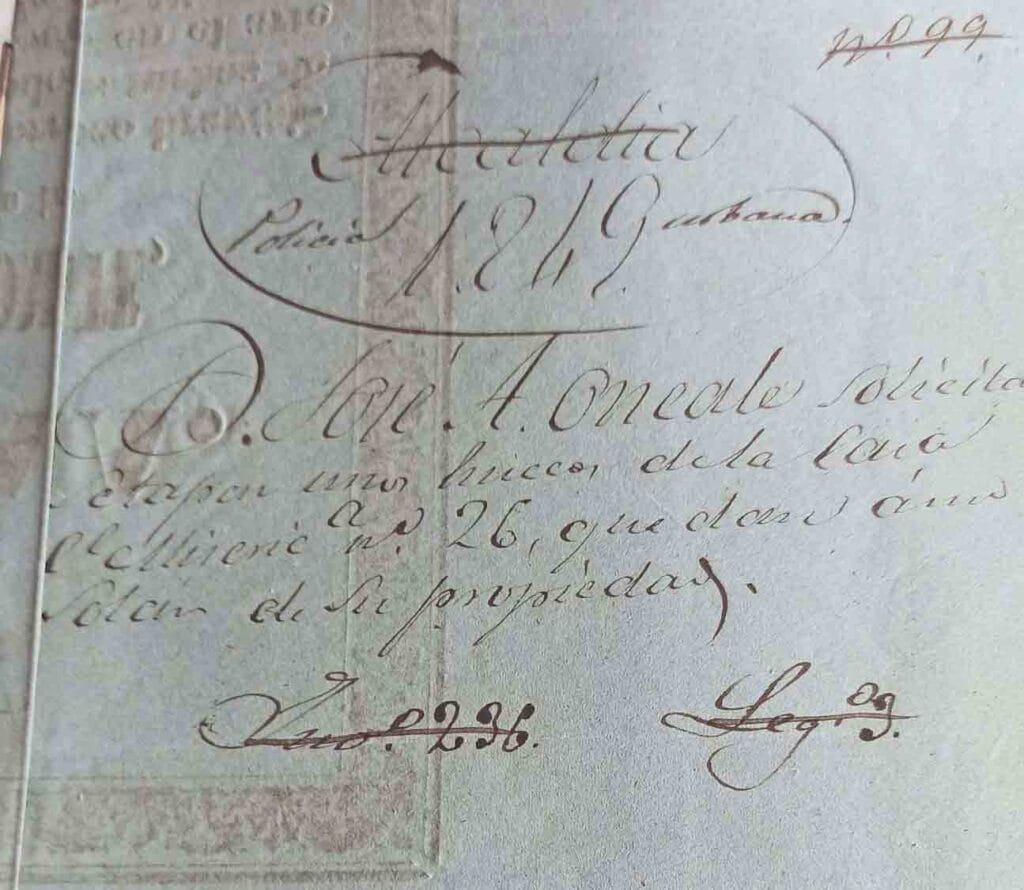 nº. 99
Alcaldia
Policia 1.849 urbana.
D. José A. Oneale solicita
se tapen unos huecos de la Casa
Cl. Misericª nº. 26, que dan á un
Solar de su propiedad.
236. Legº 3.